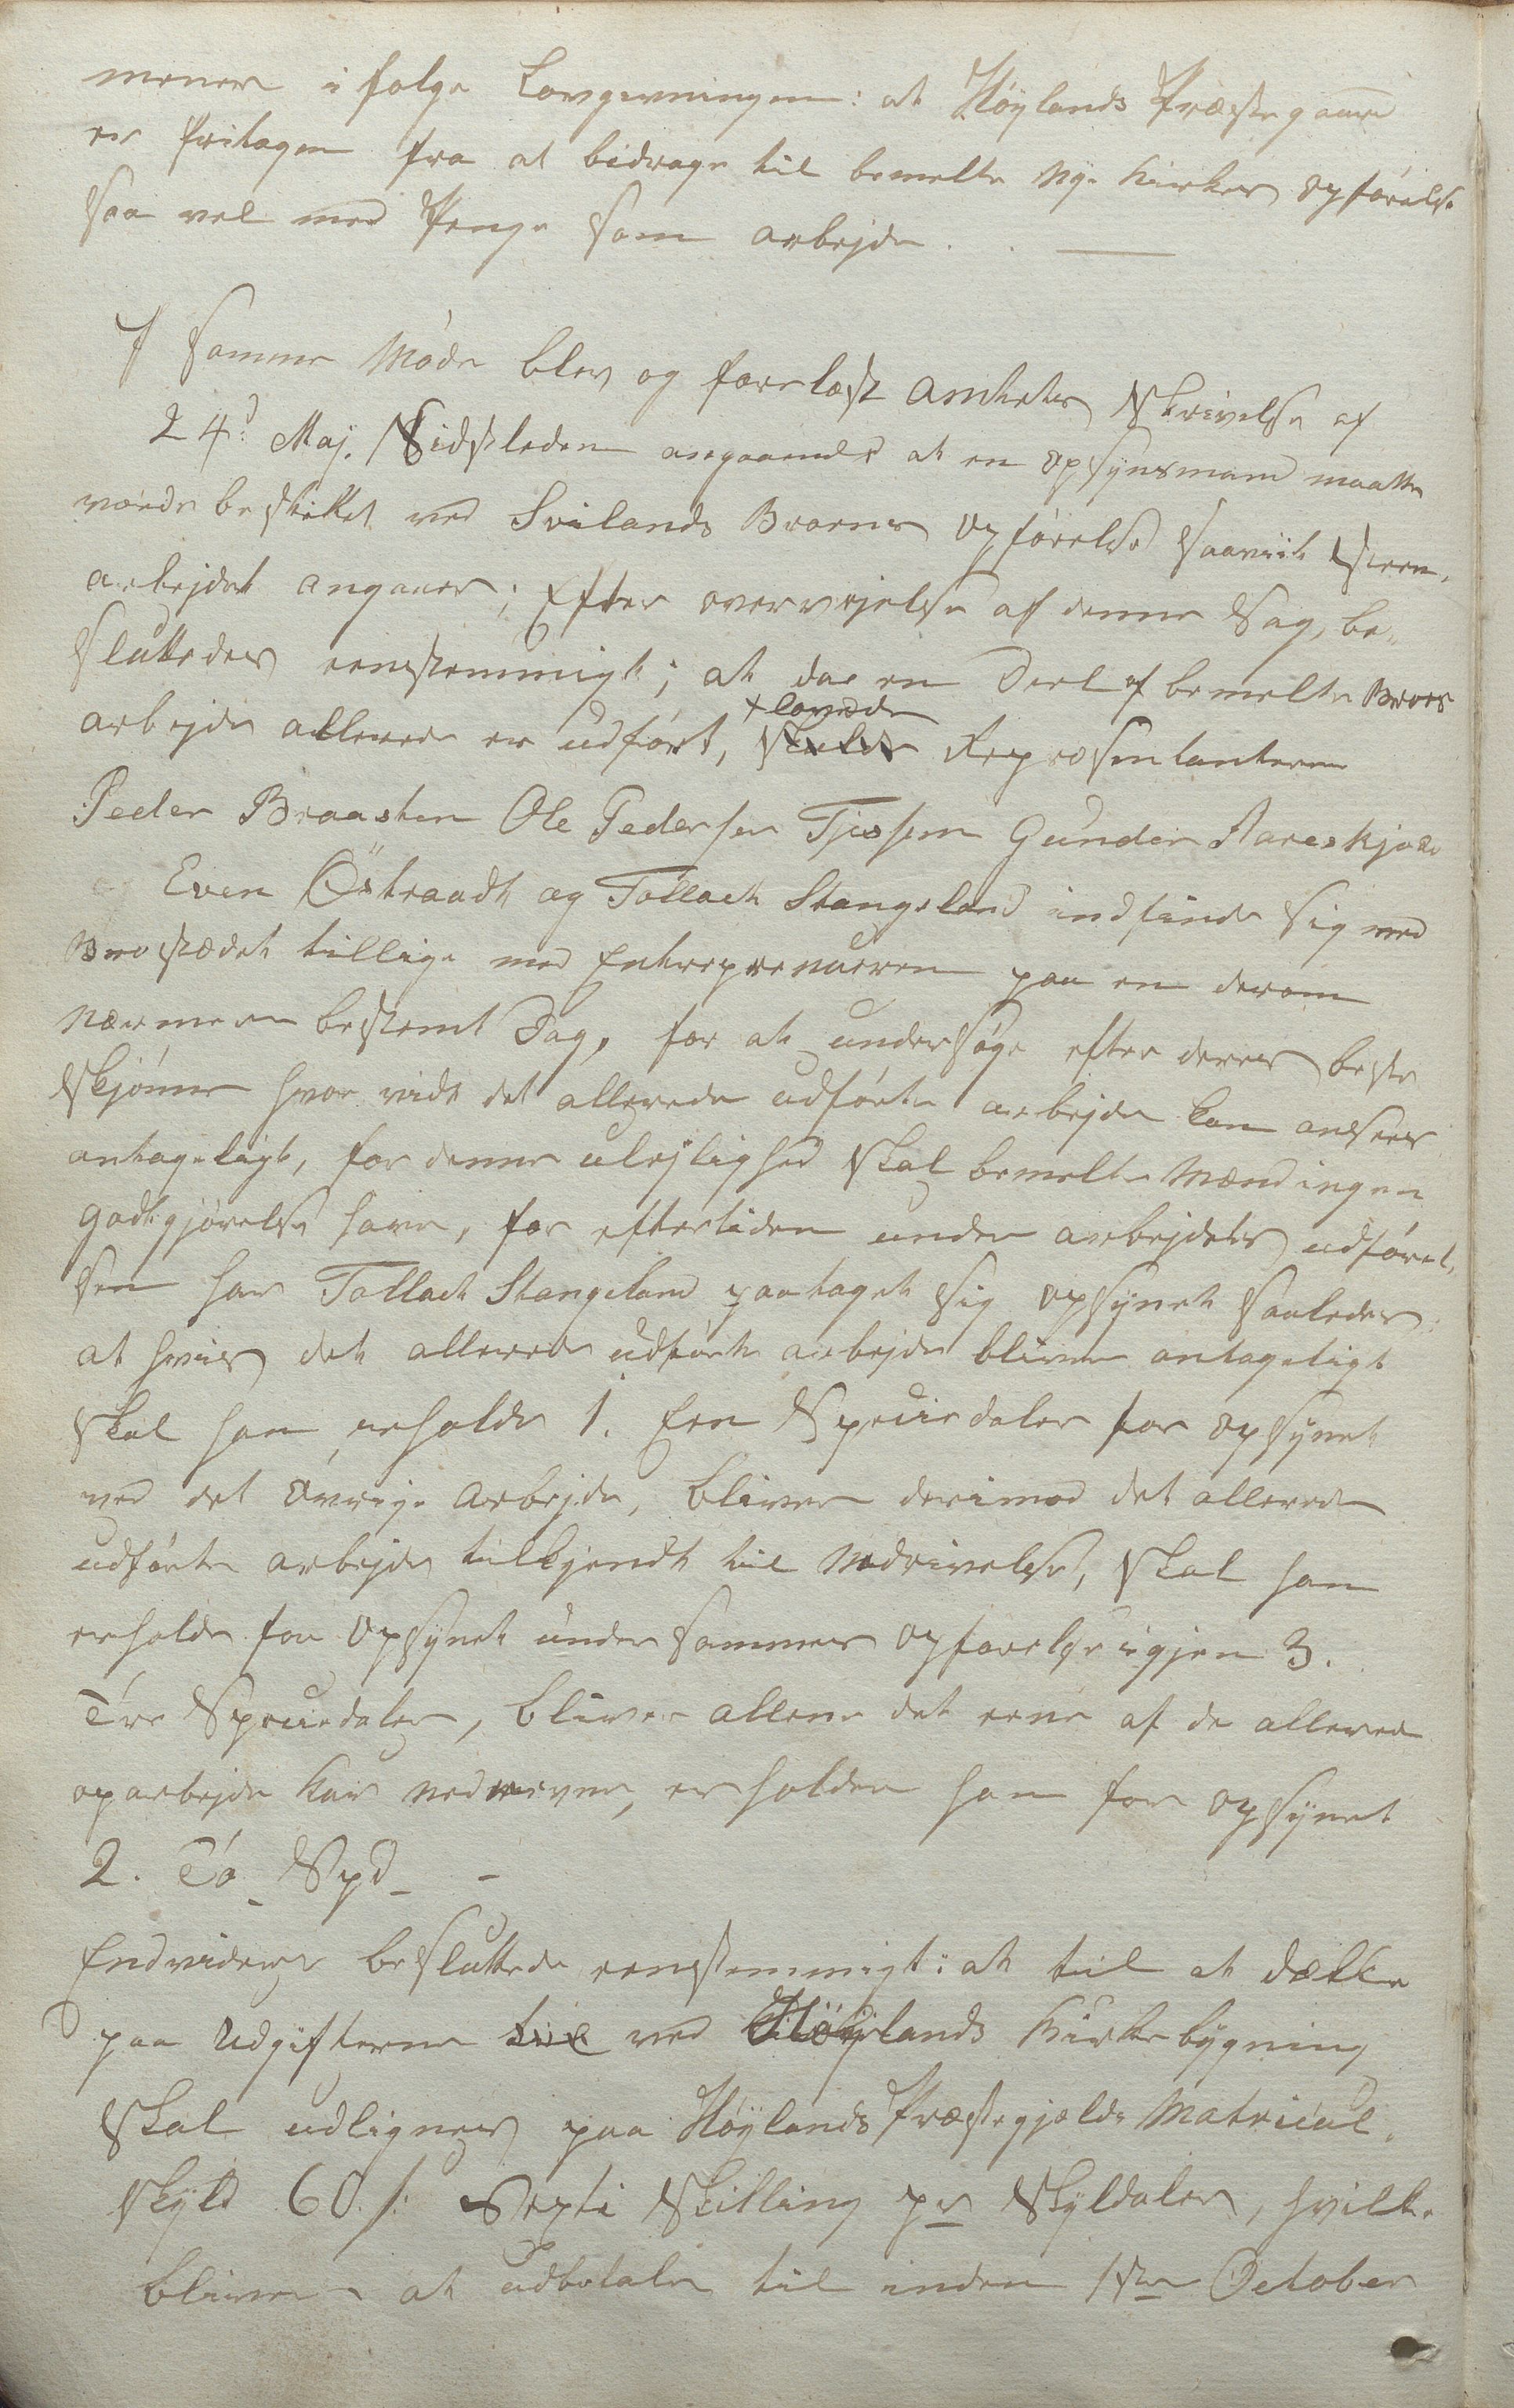 mener i følge Lovgivningen: at Høÿlands Præstegaard
er fritagen fra at bidrage til bemelte Nye Kirkes opførelse
saa vel med Penge som arbejde. . —
I samme Møde blev og forelæst Amtets Skrivelse af
24d: Maj. Sidstleden angaaende at en opsÿnsmand maatte
vorde beskikket ved Svilands Broens opførelse saaviit Steen-
arbejdet angaaer; Efter overvejelse af denne Sag, be-
sluttedes eenstemmigt; at da en Deel af bemelte Broes
+ lovede
arbejde allerede er udført, skulde Repræsentanterne
Peder Braasten Ole Pedersen Tjessem Gunder Aareskjold
Even Östraadt og Tollach Stangeland indfinde sig ved
Brostædet tillige med Entreprenueren paa en derom
nærmere bestemt Dag, for at undersøge efter deres beste
Skjønne hvor vidt det allerede udførte arbejde kan ansees
antageligt, for denne ulejlighed skal bemelte Mænd ingen
godtgjørelse have, for eftertiden under arbejdets udførel-
sen har Tollach Stangeland paataget sig opsÿnet saaledes:
at hvis det allerede udførte arbejde bliver antageligt
skal han erholde 1. Een Speciedaler for opsÿnet
ved det øvrige Arbejde, bliver derimod det allerede
udførte arbejde tilkjendt til Nedrivelse, skal han
erholde for Opsÿnet under sammes opførelse igjen 3.
Tre Speciedaler, bliver allene det eene af de allerede
oparbejde Kar nedrevne, erholder han for opsÿnet
2. To Spd -
Endvidere besluttede eenstemmigt: at til at dække
paa Udgifterne til ved Høÿlands Kirkebÿgning
skal udlignes paa Høÿlands Præstegjælds Matricul-
skÿld 60 s: Sexti Skilling pr Skÿldaler, hvilke
bliver at udbetale til inden 1ste October